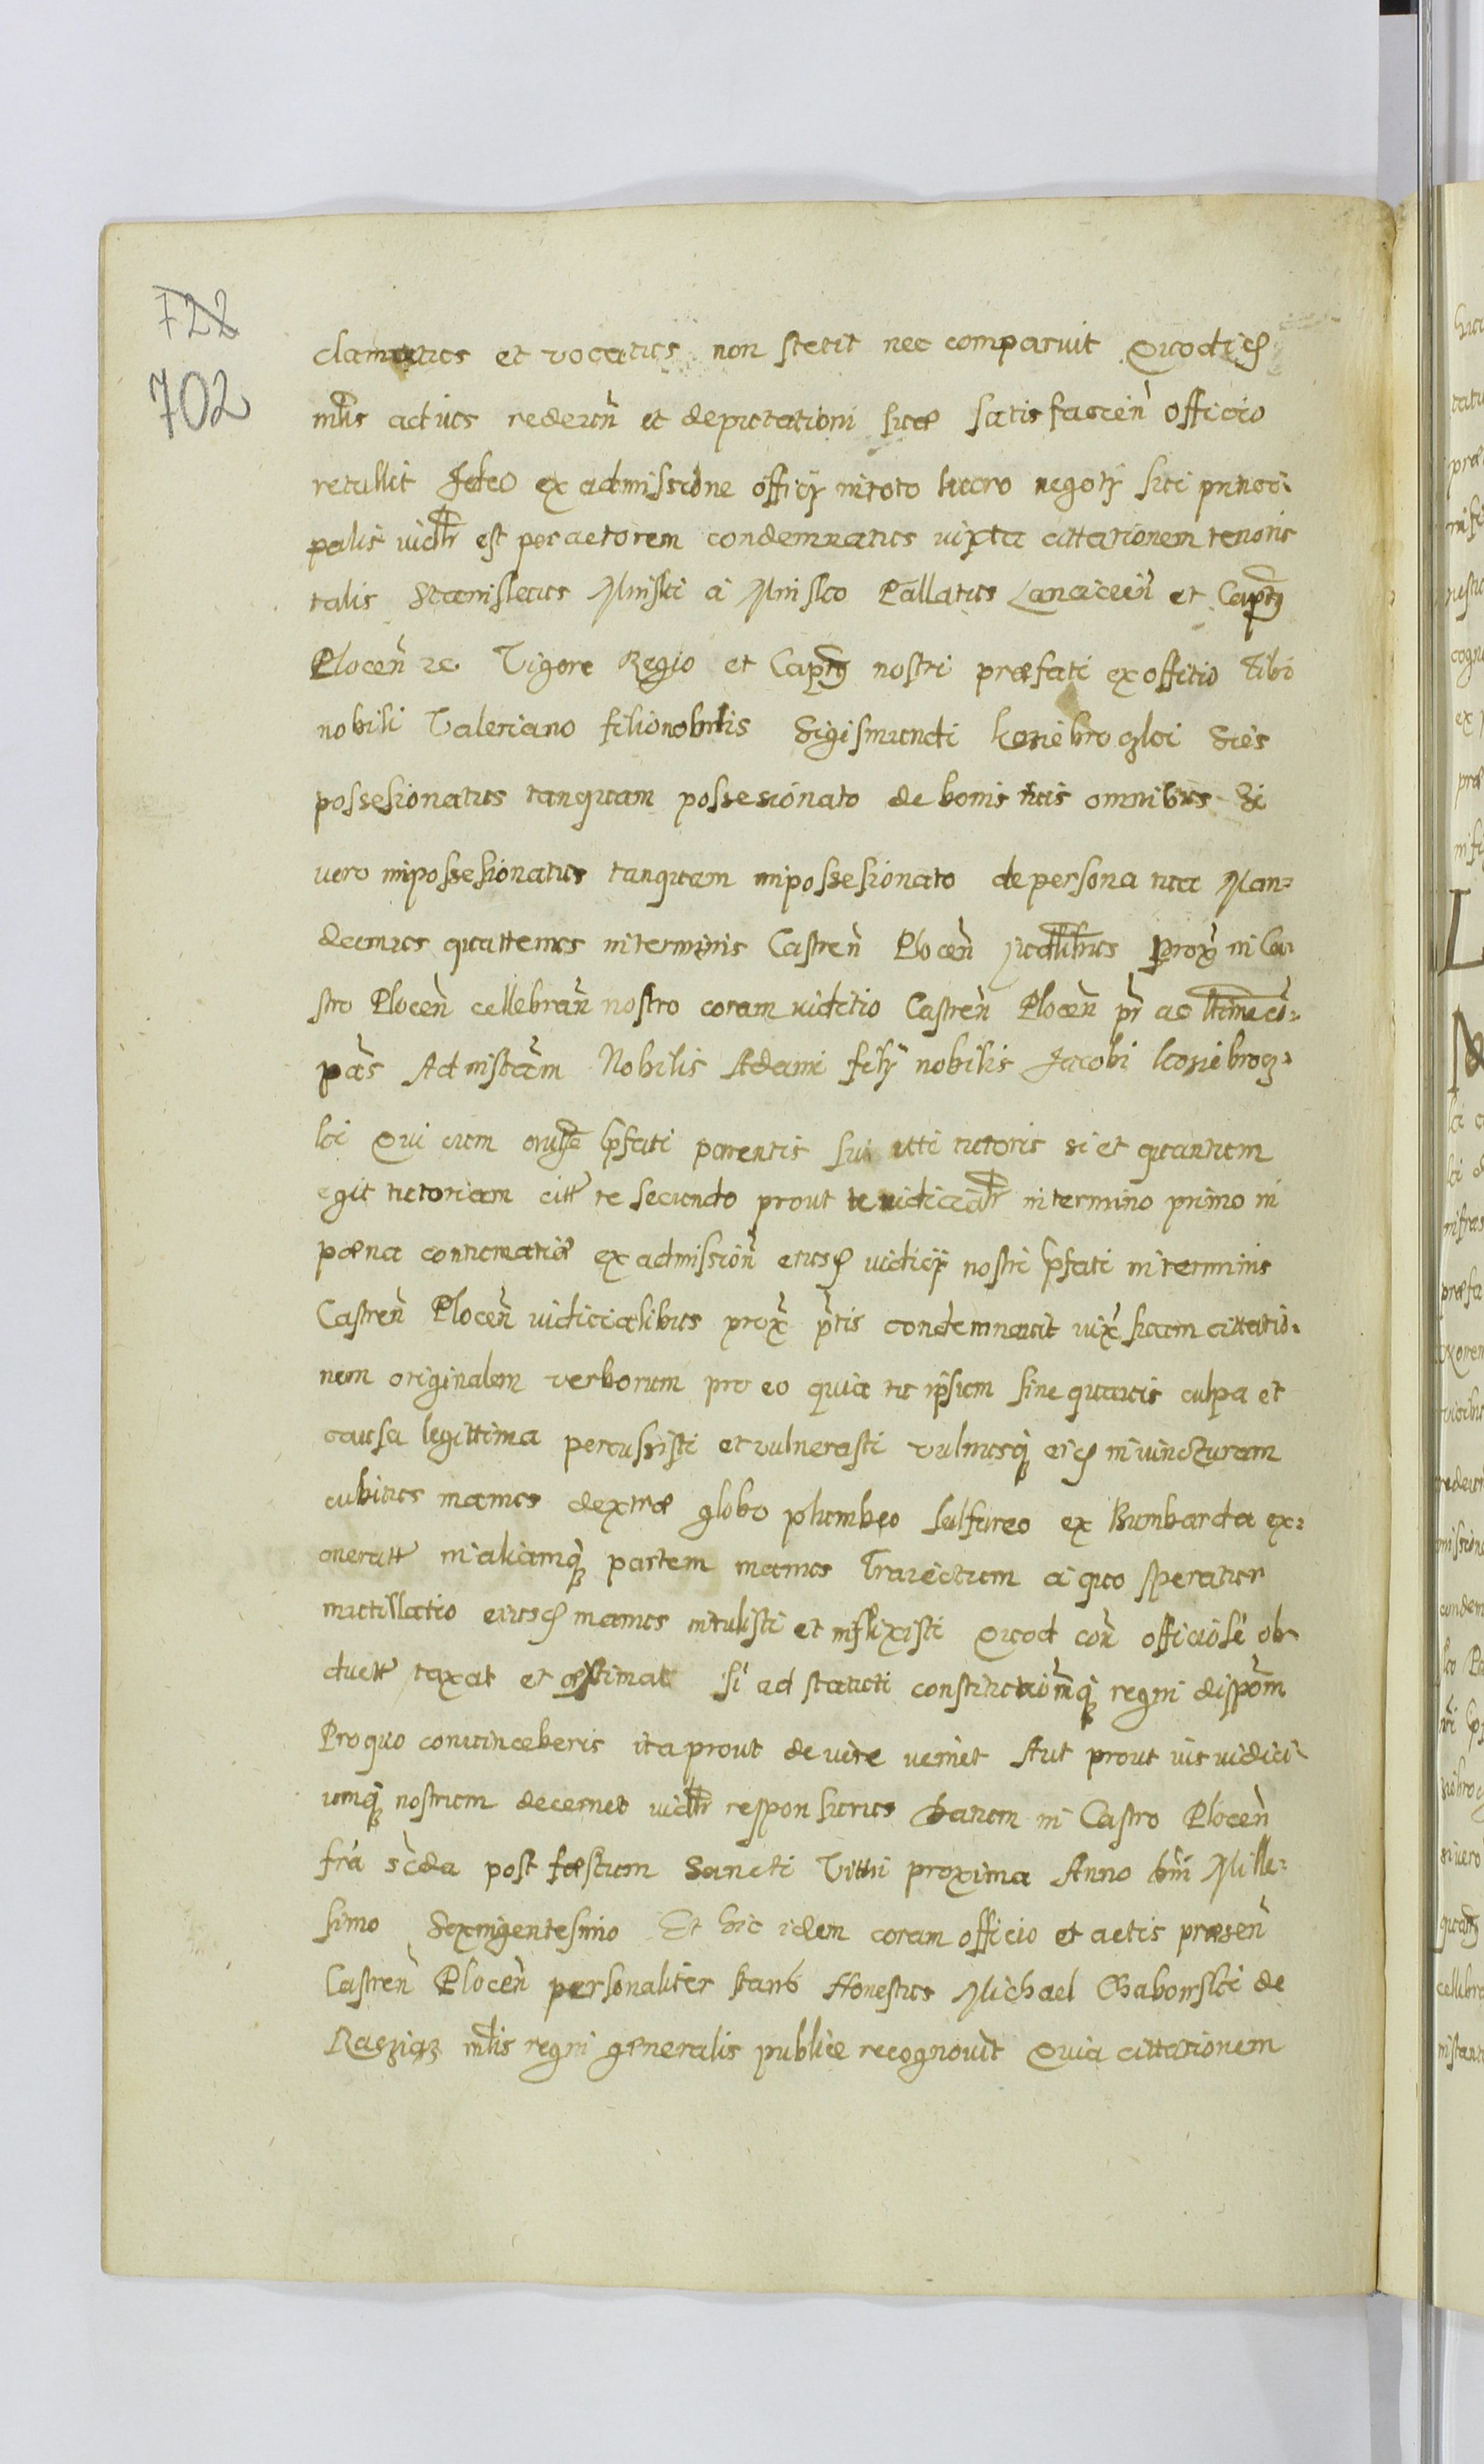 722
702
clamatus et vocatus non stetit nec comparuit Quod idē
mlis ad nos redeuñ et deputationi suæ satisfacień officio
retullit Ideo ex admissione officij in toto lucro negotij sui princi-
palis iudltr est per actorem condemnatus iuxta cittationem tenoris
talis Stanislaus Minski a Minsko Pallatus Lancicień et Captus
Plocen̄ rc Vigore Regio et Captus nostri præfati ex offitio Tibi
nobili Valeriano filio nobilis Sigismundi Koziebroczki Si es
possesionatus tanquam possesionato de bonis tuis omnibus Si
vero impossesionatus tanquam impossesionato de persona tua Man-
damus quattenus in terminis Castreñ Ploceñ judlibus prox̃ in Ca-
stro Ploceñ cellebrañ nostro coram iuditio Castreñ Ploceñ pr ac ltime cō-
pās Ad instām Nobilis Adami filij nobilis Jacobi Koziebrocz-
ki Qui cum pfati parentis sui uti tutoris si et quantum
egit tutoriam citt te secundo prout te iudicialtr in termino primo in
pæna contumatiæ ex admissioñ eiusd iudicij nostri pfati in terminis
Castreñ Ploceñ iudicialibus prox̃ ptis condemnavit iux̃ suam cittatio-
nem originalem verborum pro eo quia tu ipsum sine quavis culpa et
causa legittima percussisti et vulnerasti vulnusq́ eid in iuncturam
cubitus manus dextræ globo plumbeo sulfureo ex Bumbarda ex-
oneratt in aliamq́ partem manus Traiectum a quo speratur
mutillatio eiusd manus intulisti et inflixisti Quod coñ officiose ob
duett taxat et æstimat si ad statuti constitutioñmq́ regni dispōm
Pro quo convinceberis ita prout de iure veniet Aut prout ius iudici-
umq́ nostrum decernet iudltr responsurus Datum in Castro Ploceñ
fria scda post fæstum Sancti Vitti proxima Anno Dni Mille-
simo Sexingentesimo Et hic idem coram officio et actis præseñ
Castreñ Ploceñ personaliter stans Honestus Michael Chabowski de
Raciąz mlis regni generalis publice recognovit Quia cittationem